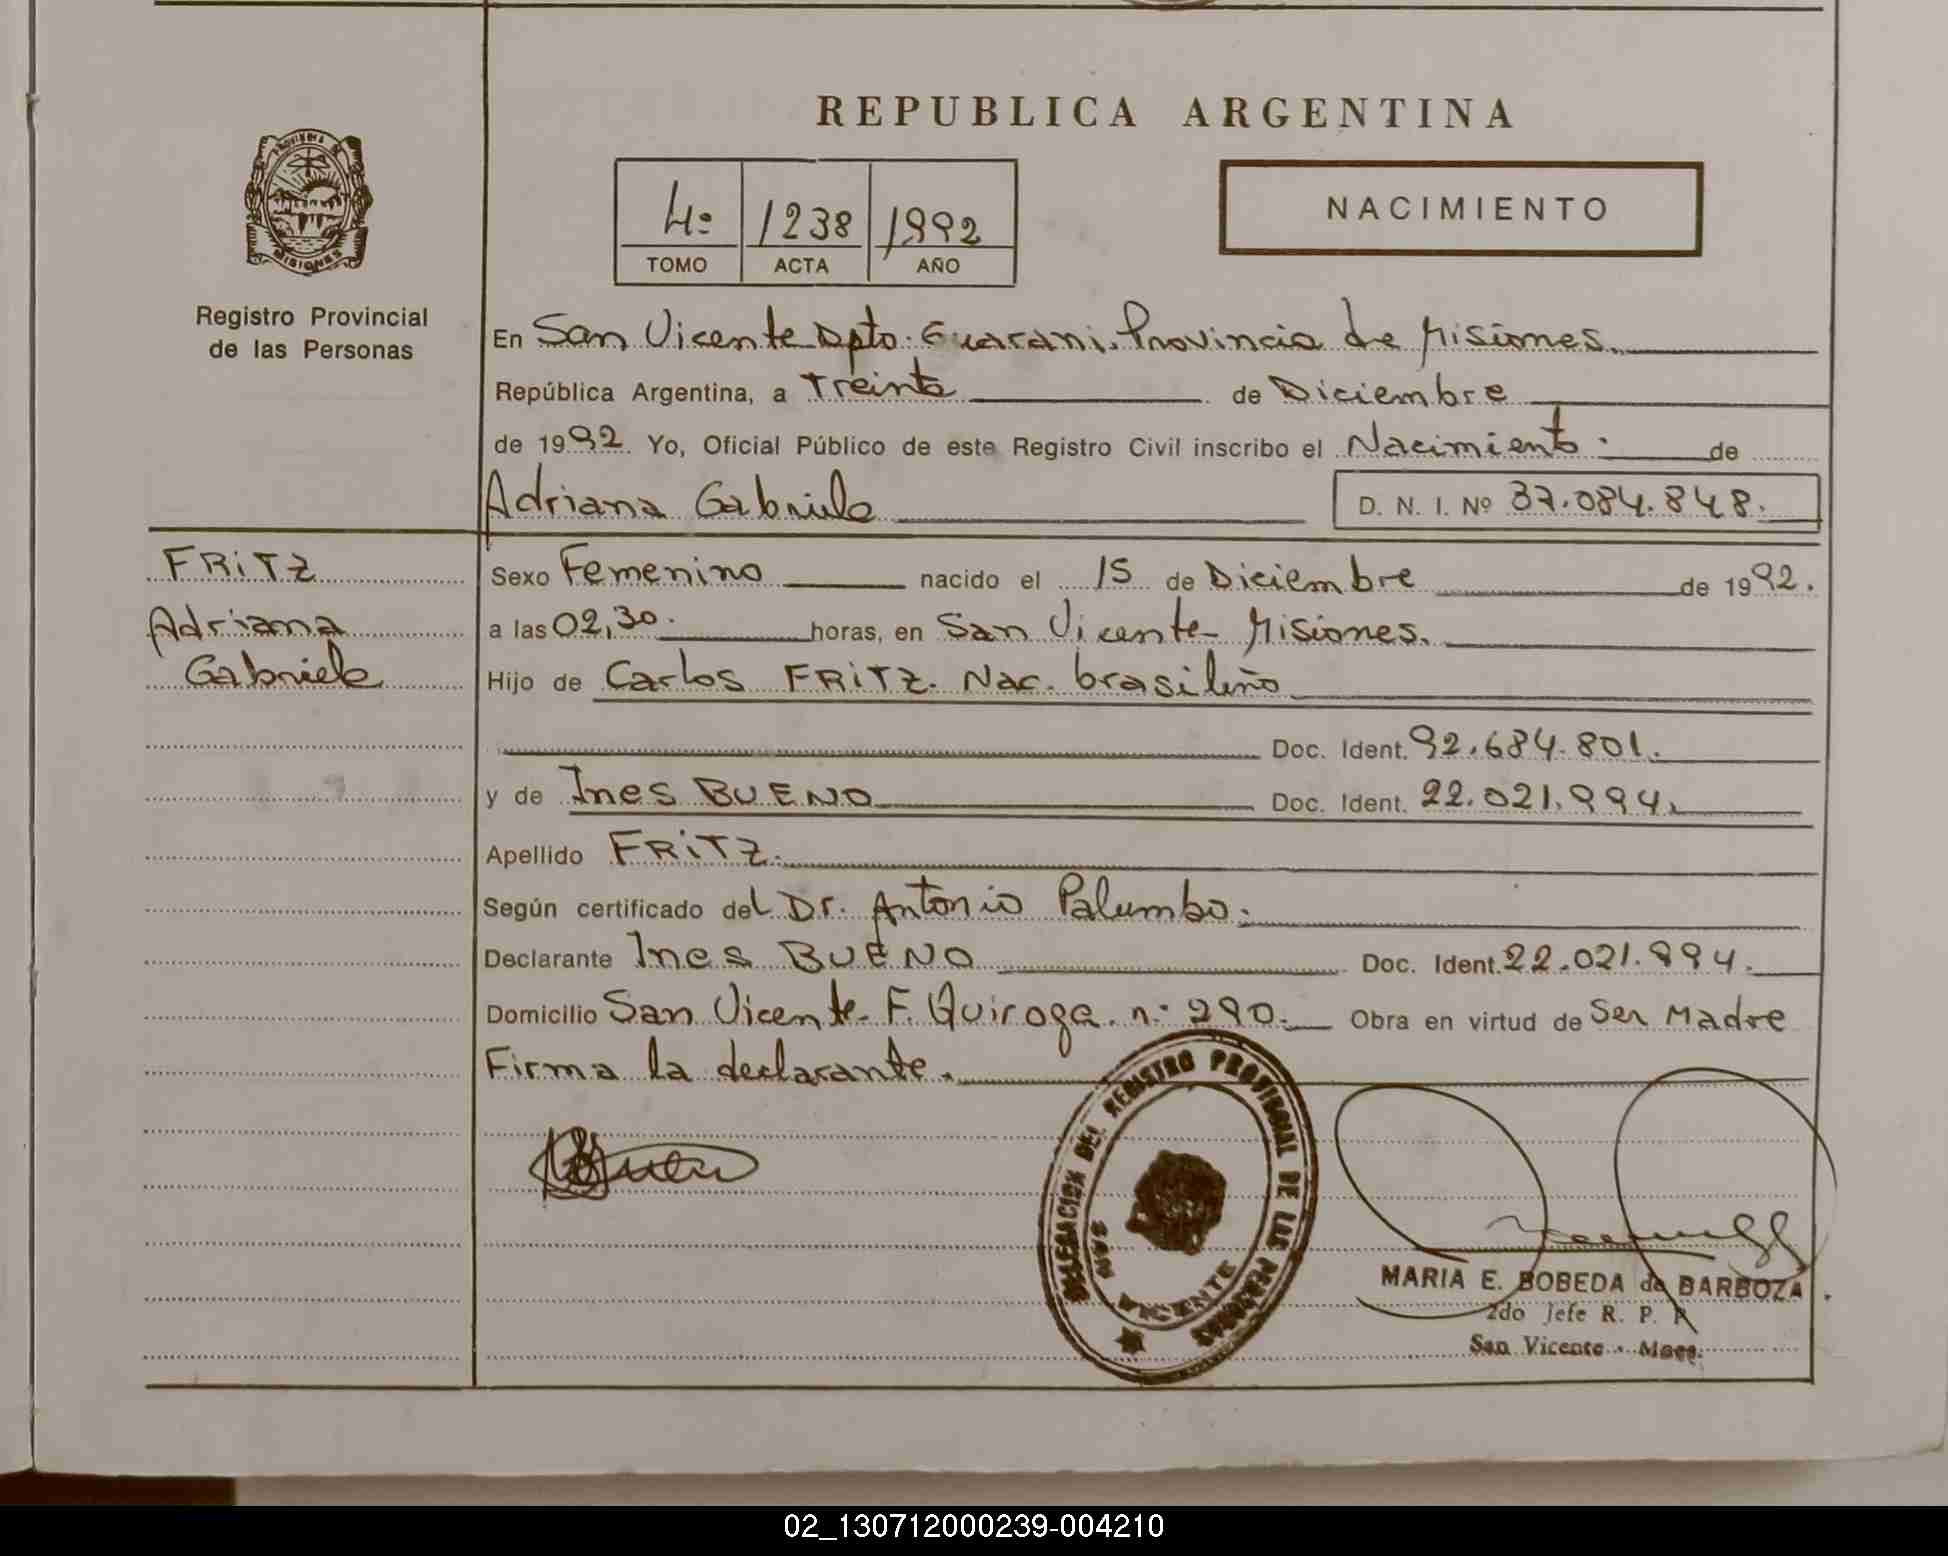 REPUBLICA ARGENTINA
PROVINCIA DE
MISIONES
Registro Provincial
de las Personas
4º 1238 1992
TOMO ACTA AÑO
NACIMIENTO
En San Vicente Dpto. Guarani. Provincia de Misiones.
República Argentina, a Treinta de Diciembre
de 1992. Yo, Oficial Público de este Registro Civil inscribo el Nacimiento. de
Adriana Gabriela D. N. I. Nº 37.084.848.
FRiTZ
Adriana
Gabriela
Sexo Femenino nacido el 15 de Diciembre de 1992.
a las 02,30. horas, en San Vicente Misiones.
Hijo de Carlos FRiTZ. Nac. brasileño
Doc. Ident. 92.684.801.
y de Ines BUENO Doc. Ident. 22.021.994.
Apellido FRiTZ.
Según certificado del Dr. Antonio Palumbo.
Declarante Ines BUENO Doc. Ident. 22.021.994.
Domicilio San Vicente. F. Quiroga. n. 290. Obra en virtud de Ser Madre
Firma la declarante.
DELEGACION DEL REGISTRO PROVINCIAL DE LAS PERSONAS
SAN VICENTE
MARIA E. BOBEDA de BARBOZA
2do Jefe R. P. P.
San Vicente - Mnes.
02_130712000239-004210